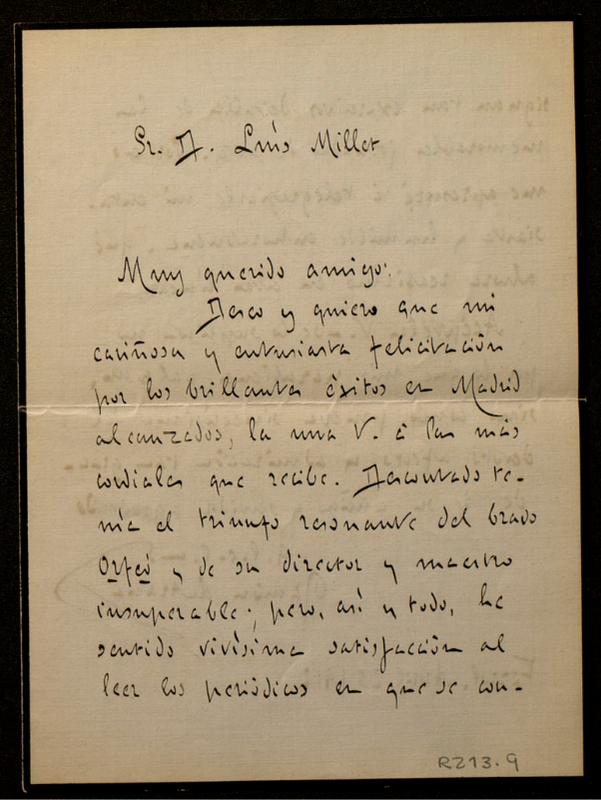 Sr. D. Luís Millet
Muy querido amigo:
Deseo y quiero que mi
cariñosa y entusiasta felicitación
por los brillantes éxitos en Madrid
alcanzados, la una V. á las más
cordiales que recibe. Descontado te-
nía el triunfo resonante del bravo
Orfeó y de su director y maestro
insuperable; pero, así y todo, he
sentido vivísima satisfacción al
leer los periódicos en que se con-
R213.9